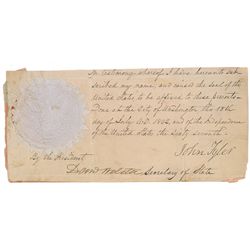 In testimony whereof I have hereunto sub-
scribed my name, and caused the seal of the
United States to be affixed to these presents
Done at the City of Washington the 18th
day of July A.D. 1842, and of the Independence
of the United States the Sixty seventh.
John Tyler
By the President
Daniel Webster Secretary of State